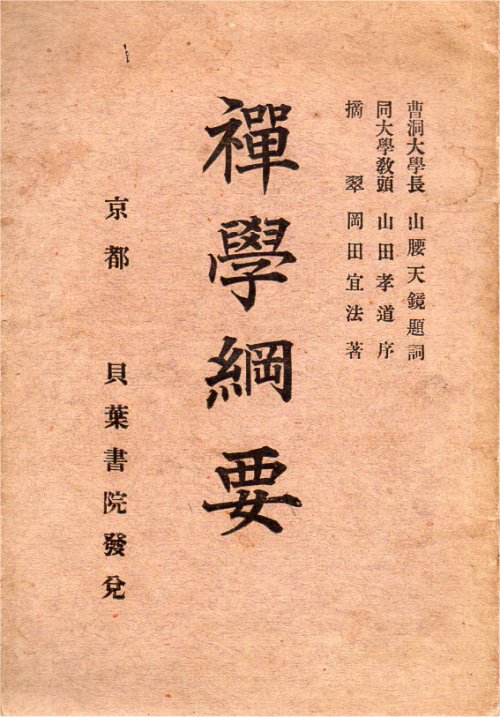 曹洞大學長 山腰天鏡題詞
同大學敎頭 山田孝道序
摘翠 岡田宜法著
禪學綱要
京都 貝葉書院發兌